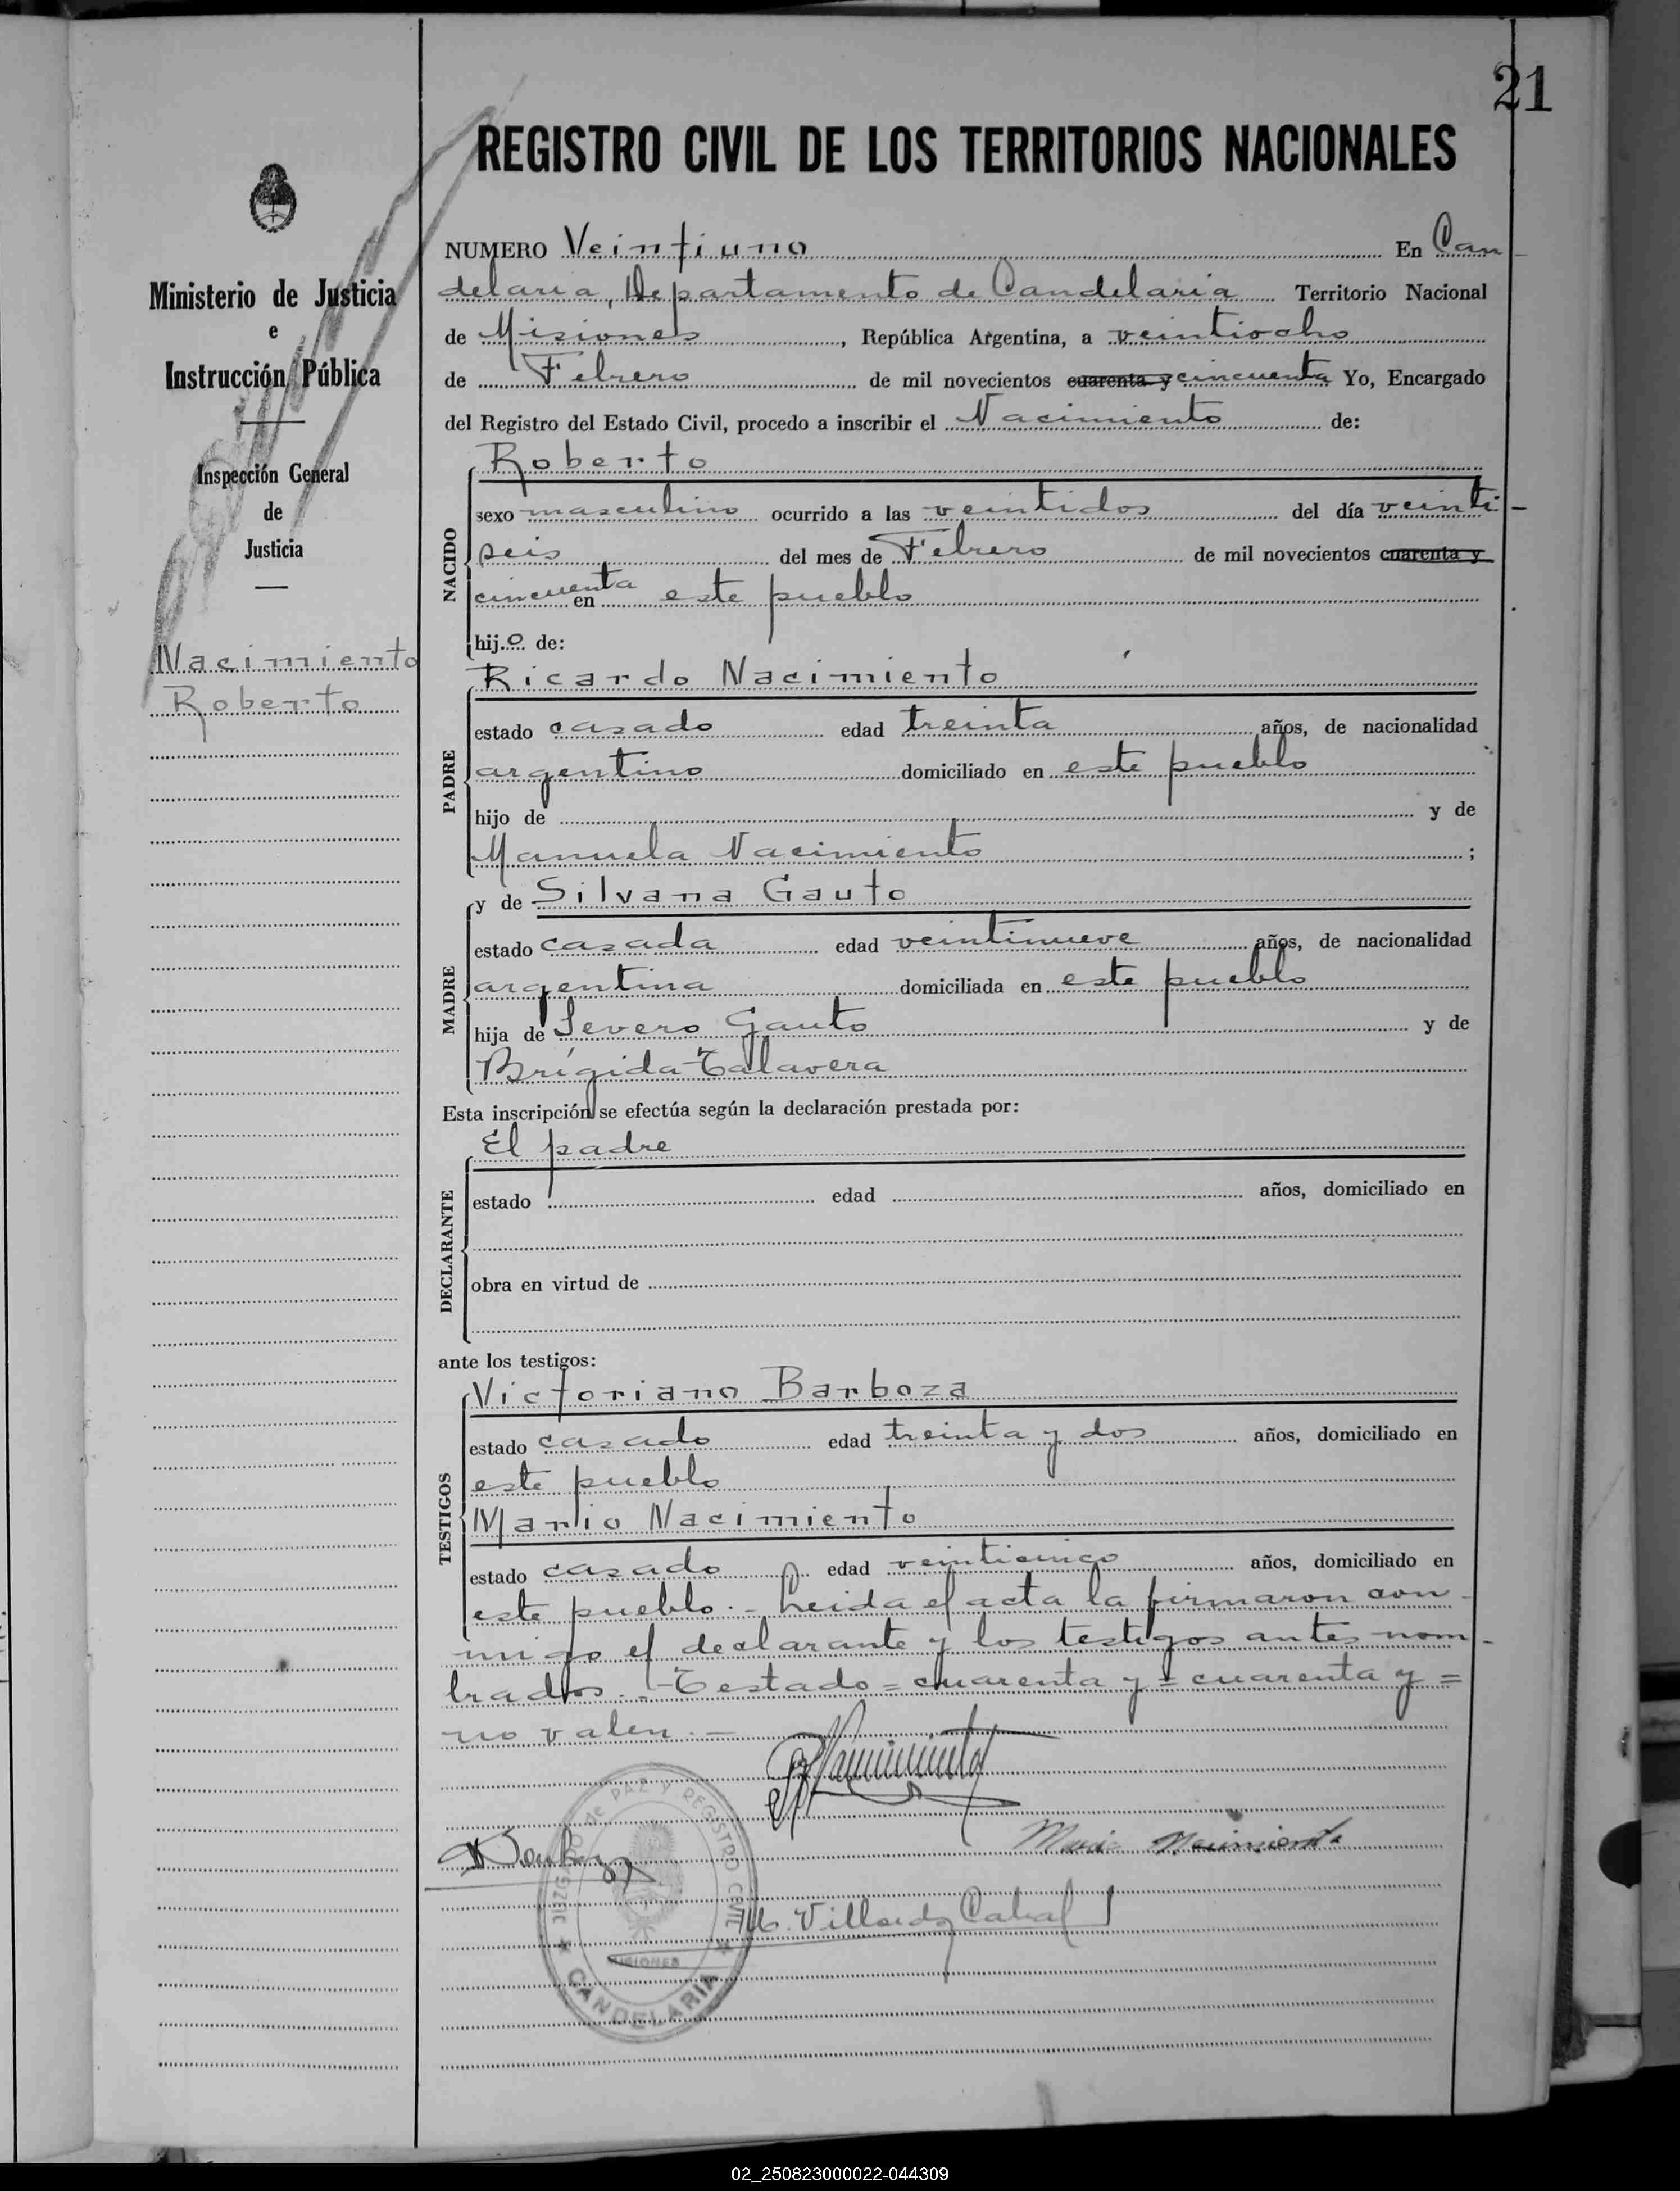 21
REGISTRO CIVIL DE LOS TERRITORIOS NACIONALES
Ministerio de Justicia
e
Instrucción Pública
Inspección General
de
Justicia
Nacimiento
Roberto
NUMERO Veintiuno En Can-
delaria, Departamento de Candelaria Territorio Nacional
de Misiones, República Argentina, a veintiocho
de Febrero de mil novecientos cuarenta y cincuenta Yo, Encargado
del Registro del Estado Civil, procedo a inscribir el Nacimiento de:
NACIDO
Roberto
sexo masculino ocurrido a las veintidos del día veinti-
seis del mes de Febrero de mil novecientos cuarenta y
cincuenta en este pueblo
hijo de:
PADRE
Ricardo Nacimiento
estado casado edad treinta años, de nacionalidad
argentino domiciliado en este pueblo
hijo de y de
Manuela Nacimiento ;
MADRE
y de Silvana Gauto
estado casada edad veintinueve años, de nacionalidad
argentina domiciliada en este pueblo
hija de Severo Gauto y de
Brígida Talavera
Esta inscripción se efectúa según la declaración prestada por:
DECLARANTE
El padre
estado edad años, domiciliado en
obra en virtud de
ante los testigos:
TESTIGOS
Victoriano Barboza
estado casado edad treinta y dos años, domiciliado en
este pueblo
Mario Nacimiento
estado casado edad veinticinco años, domiciliado en
este pueblo.- Leida el acta la firmaron con-
migo el declarante y los testigos antes nom-
brados.- Testado = cuarenta y = cuarenta y =
no valen.-
R Nacimiento
Mario Nacimiento
JUZGADO de PAZ Y REGISTRO CIVIL
MISIONES
CANDELARIA
Villordo Cabral
02_250823000022-044309